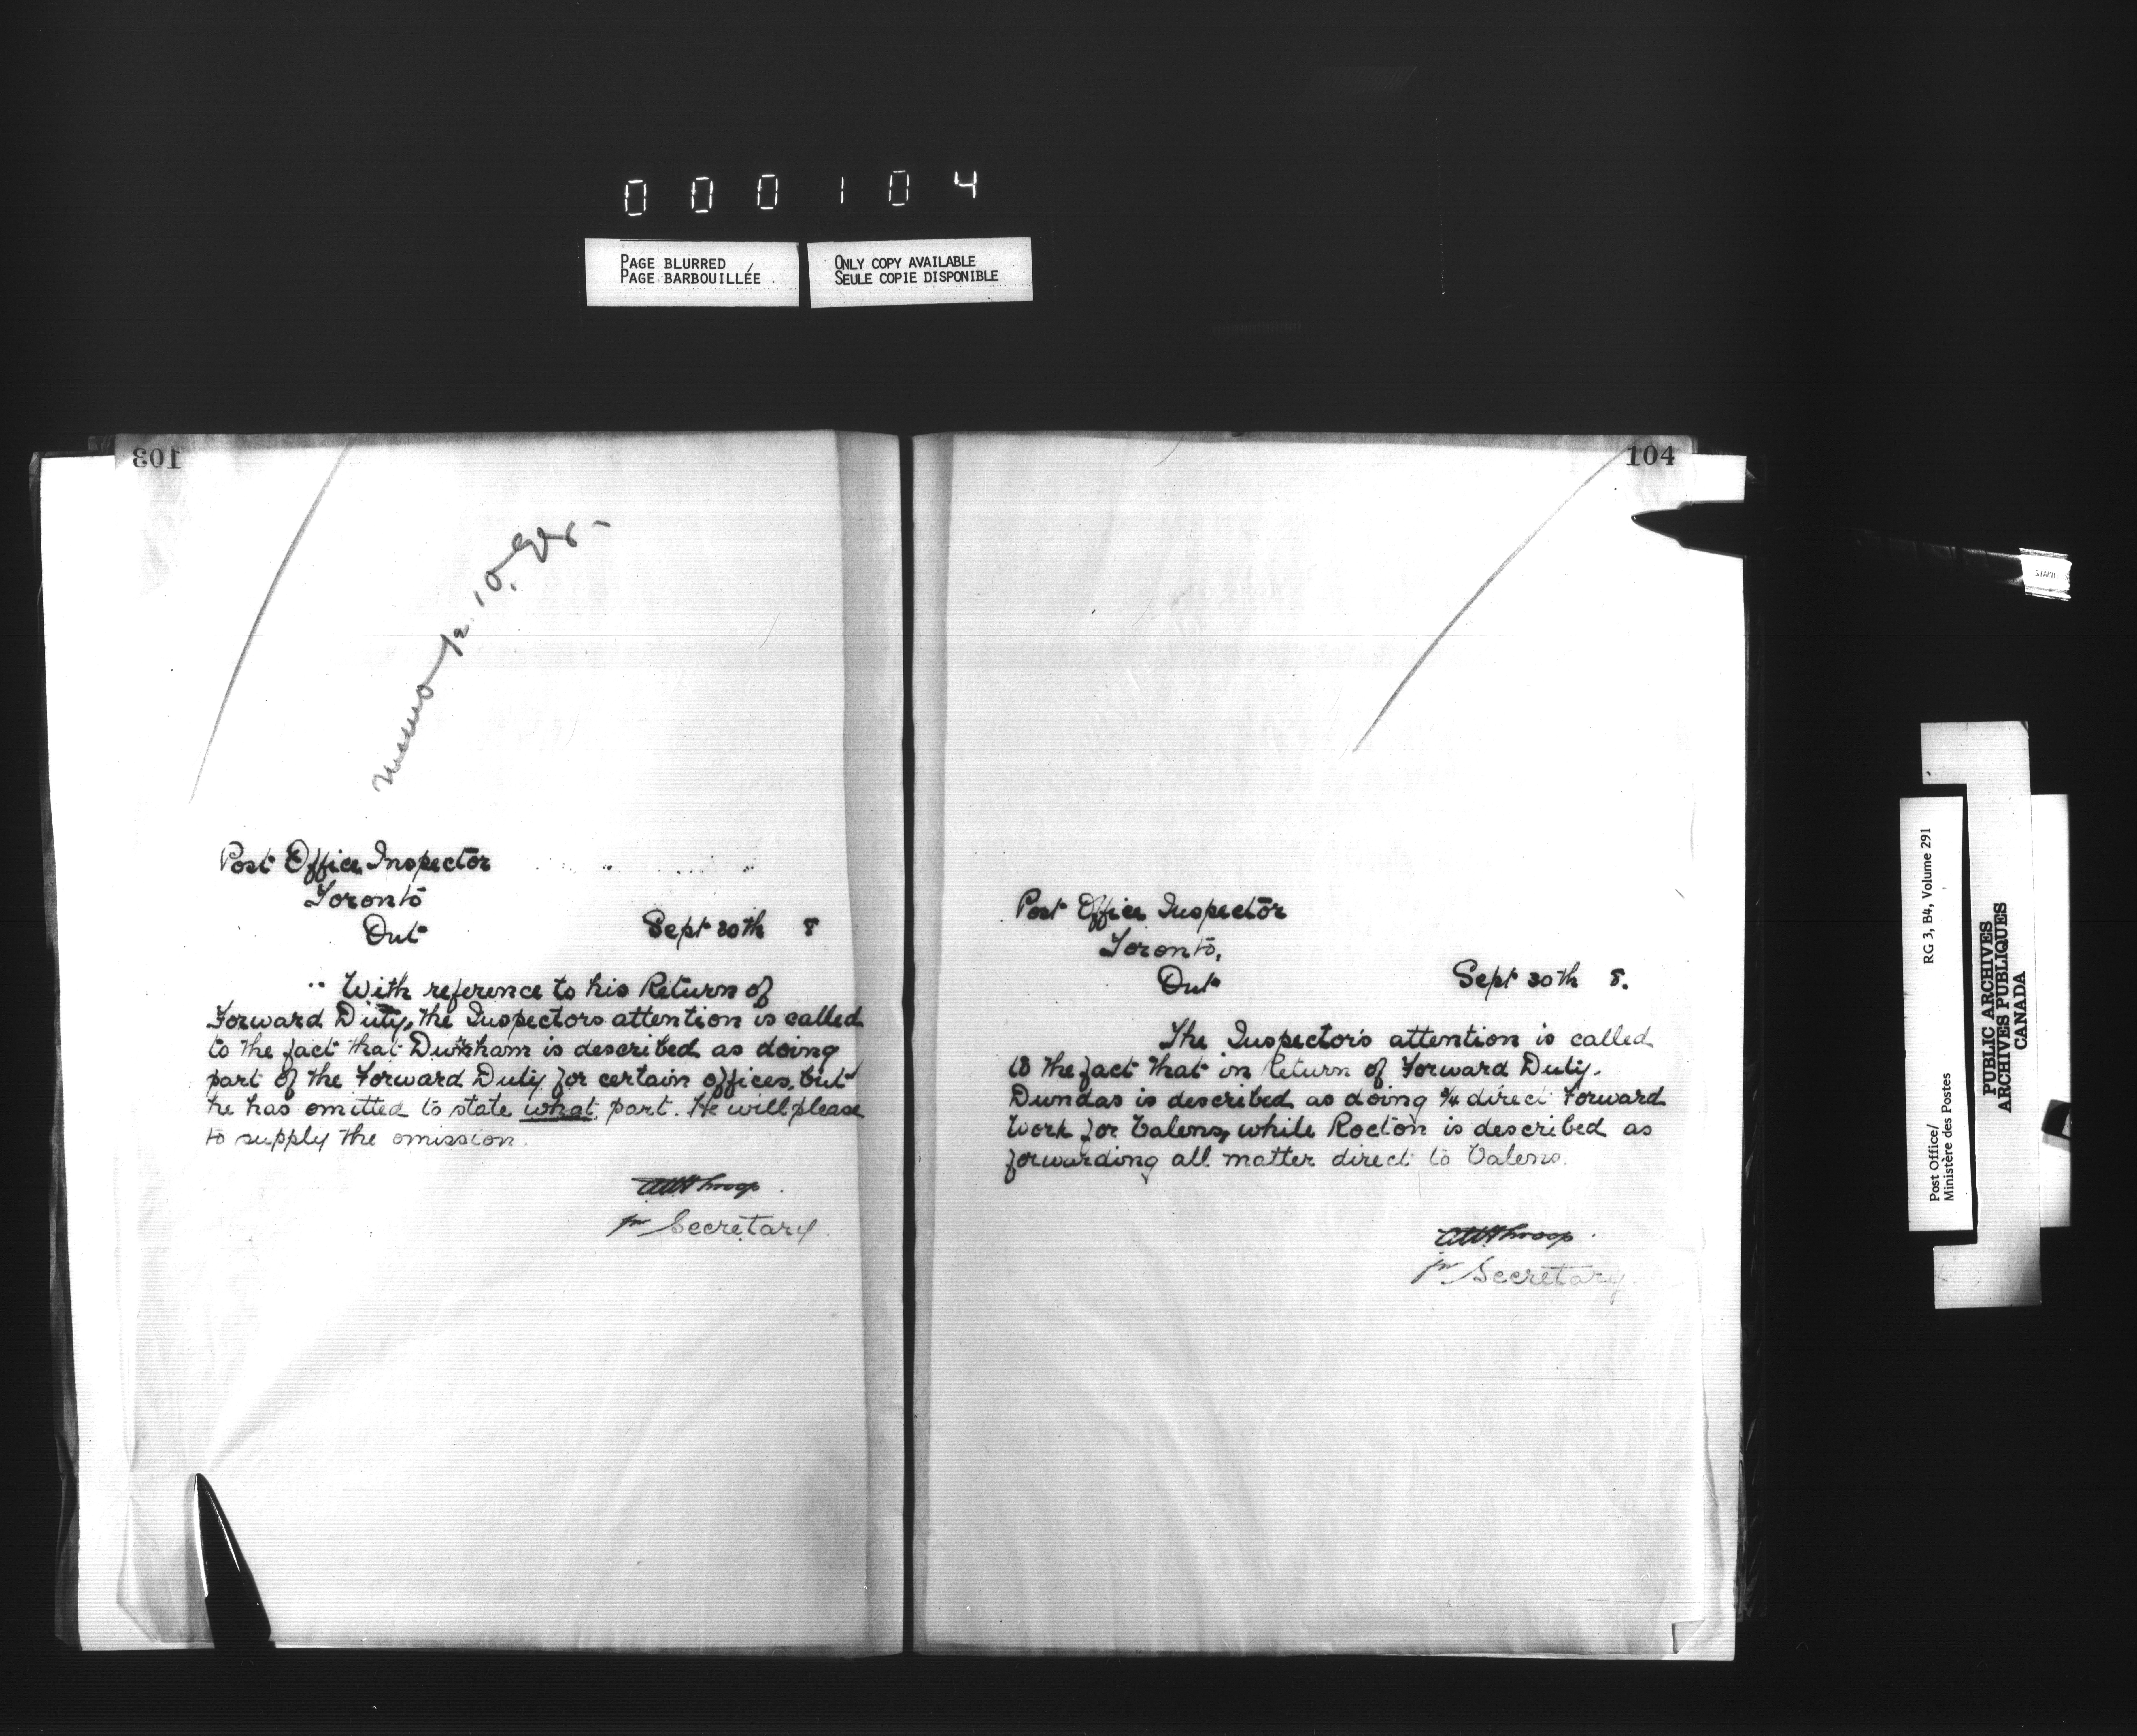 000104
PAGE BLURRED
PAGE BARBOUILLÉE
ONLY COPY AVAILABLE
SEULE COPIE DISPONIBLE
103
Memo p. 10.
Post Office Inspector
Toronto
Ont
Sept 30th 8
With reference to his Return of
Forward Duty, the Inspectors attention is called
to the fact that is described as doing
part of the Forward Duty for certain offices, but
he has omitted to state what part. He will please
to supply the omission.
Throop
for Secretary.
104
Post Office Inspector
Toronto,
Ont
Sept 30th 8.
The Inspector's attention is called
to the fact that in Return of Forward Duty.
Dundas is described as doing ¾ direct Forward
Work for Valens, while Rocton is described as
forwarding all matter direct to Valens.
Throop
for Secretary.
STAPH
Post Office/
Ministère des Postes
RG 3, B4, Volume 291
PUBLIC ARCHIVES
ARCHIVES PUBLIQUES
CANADA